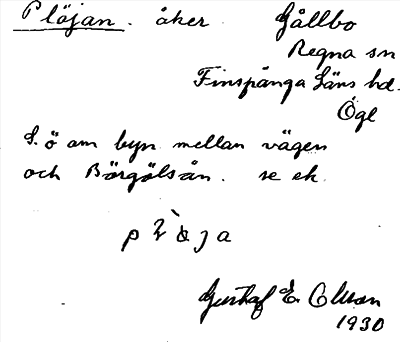 Plöjan. åker Gållbo
Regna sn
Finspånga Läns hd.
Ögl
S. ö om byn mellan vägen
och Börgölsån. se ek.
Gustaf E. Olsson
1930